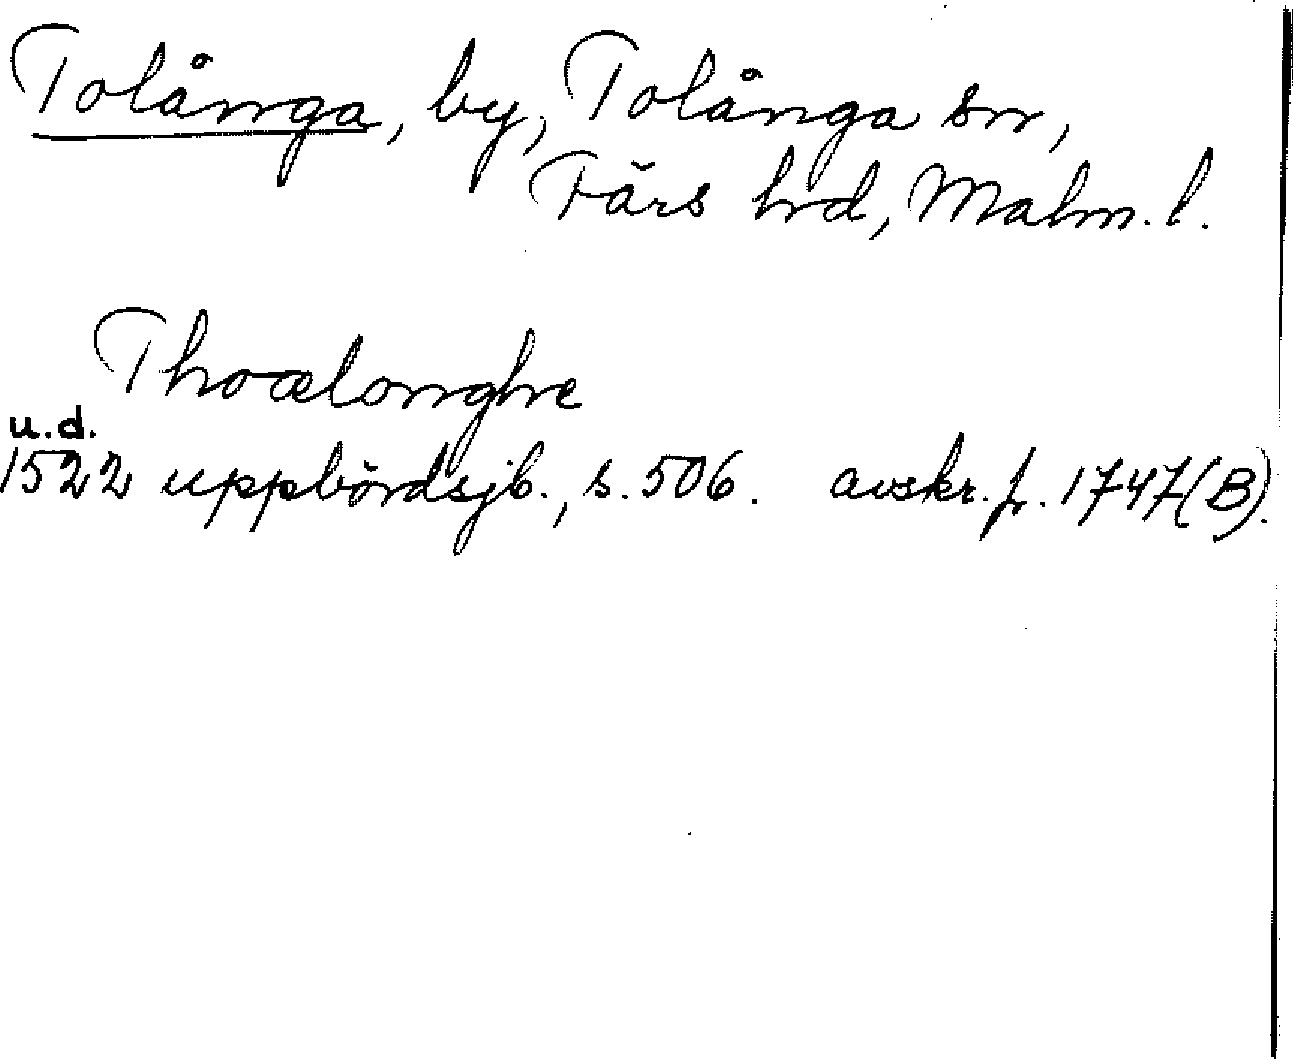 Tolånga, by, Tolånga sn,
Färs hrd, Malm. l.
Thoælonghe
u.d.
1522 uppbördsjb., s. 506. avskr. fr. 1747 (B).